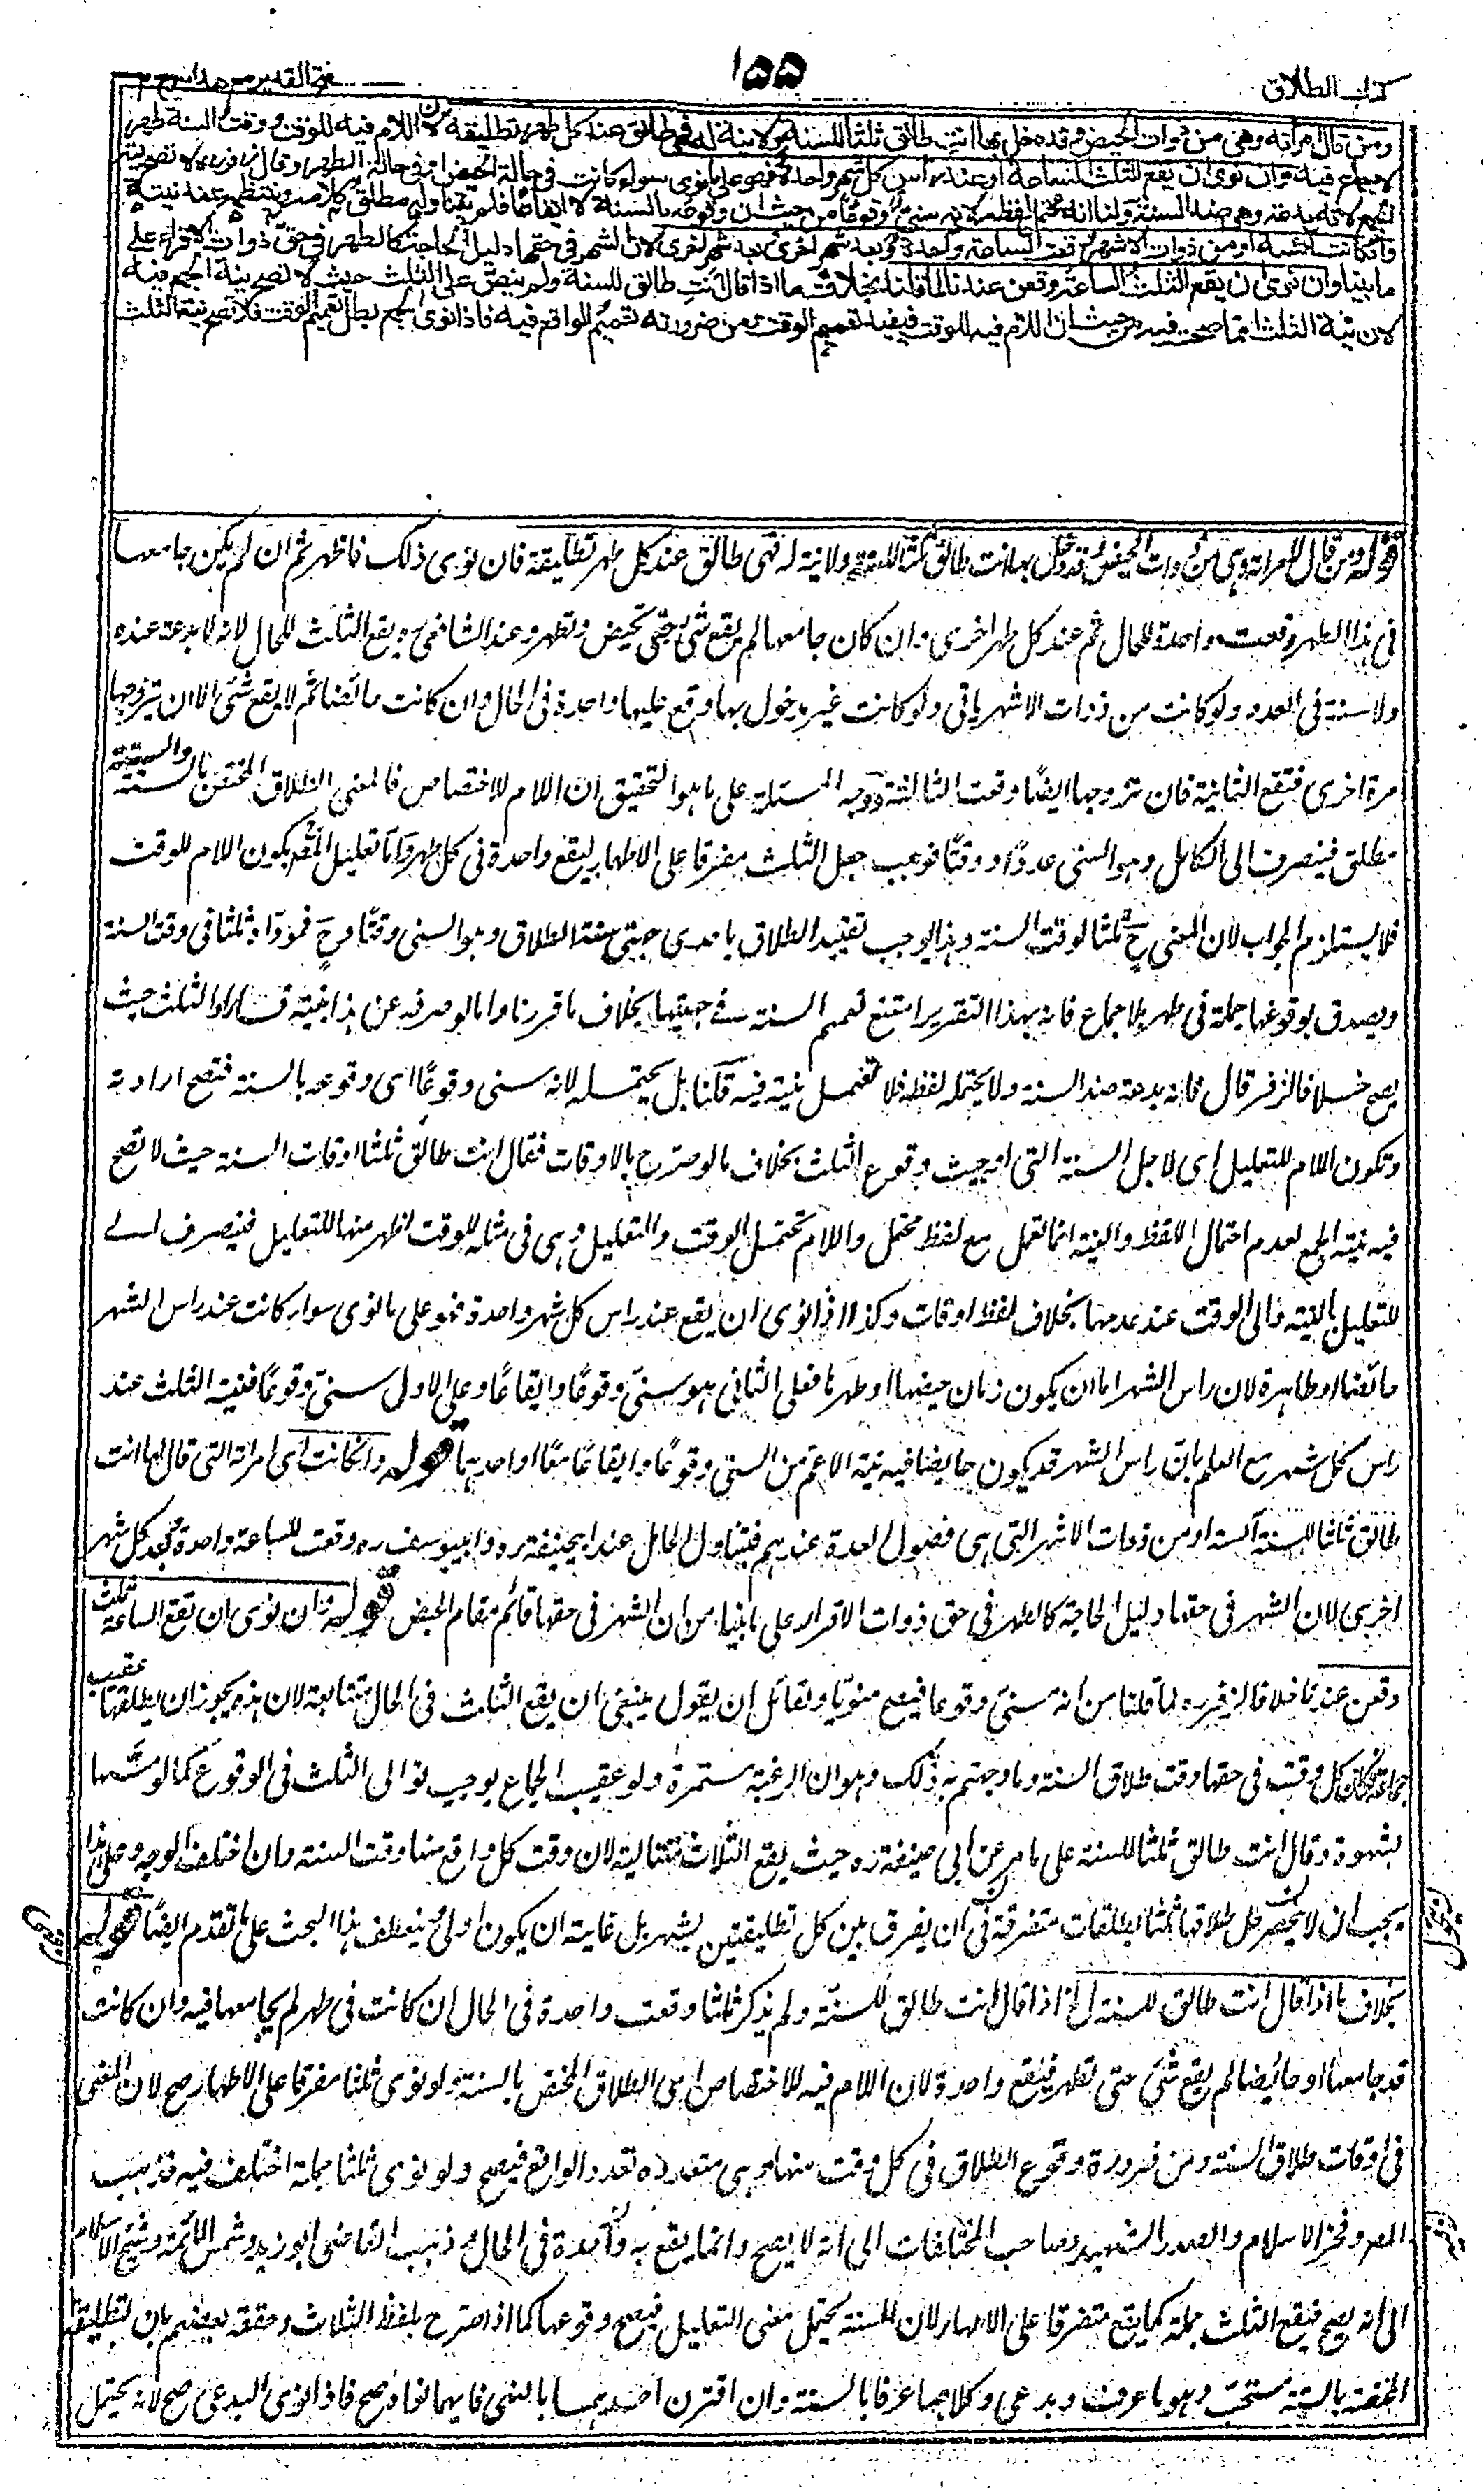 كتاب الطلاق
١٥٥
فتح القدير مع هدايه ج ٢
ومن قال لامرأته وهي من ذوات الحيض وقد دخل بها انت طالق ثلثا للسنة ولا نية له فهي طالق عند كل طهر تطليقة لان اللام فيه للوقت ووقت السنة طهر
لا جماع فيه وان نوى ان يقع الثلث الساعة او عند رأس كل شهر واحدة فهو على ما نوى سواء كانت في حالة الحيض او في حالة الطهر وقال زفر ره لا تصح نية
الجمع لانه بدعة وهي ضد السنة ولنا انه محتمل لفظه لانه سني وقوعا من حيث ان وقوعه بالسنة لا ايقاعا فلم يتناوله مطلق كلامه وينتظمه عند نيته
وان كانت آئسة او من ذوات الاشهر وقعت الساعة واحدة وبعد شهر اخرى وبعد شهر اخرى لان الشهر في حقها دليل الحاجة كالطهر في حق ذوات الاقراء على
ما بينا وان نوى ان يقع الثلث الساعة وقعن عندنا لما قلنا بخلاف ما اذا قال انت طالق للسنة ولم ينص على الثلث حيث لا تصح نية الجمع فيه
لان نية الثلث انما صحت فيه من حيث ان اللام فيه للوقت فيفيد تعميم الوقت ومن ضرورته تعميم الواقع فيه فاذا نوى الجمع بطل تعميم الوقت فلا تصح نية الثلث
قوله ومن قال لامرأته وهي من ذوات الحيض وقد دخل بها انت طالق ثلثا للسنة ولا نية له فهي طالق عند كل طهر تطليقة فان نوى ذلك فاظهر ثم ان لم يكن جامعها
في هذا الطهر وقعت واحدة للحال ثم عند كل طهر اخرى وان كان جامعها لم يقع شئ حتى تحيض وتطهر وعند الشافعي ره يقع الثلث للحال لانه لا بدعة عنده
ولا سنة في العدد ولو كانت من ذوات الاشهر ياتي ولو كانت غير مدخول بها وقع عليها واحدة في الحال وان كانت حائضا ثم لا يقع شئ الا ان يتزوجها
مرة اخرى فتقع الثانية فان تزوجها ايضا وقعت الثالثة ووجه المسئلة على ما هو التحقيق ان اللام للاختصاص فالمعنى الطلاق المختص بالسنة والسنة
مطلق فينصرف الى الكامل وهو السني عددا ووقتا فوجب جعل الثلث مفرقا على الاطهار ليقع واحدة في كل طهر واما تعليل المص بكون اللام للوقت
فلا يستلزم الجواب لان المعنى ح ثلثا لوقت السنة وهذا يوجب تقييد الطلاق باحدى جهتي سنة الطلاق وهو السني وقتا وح فمؤداه ثلثا في وقت السنة
ويصدق بوقوعها جملة في طهر بلا جماع فانه بهذا التقرير امتنع تعميم السنة في جهتيها بخلاف ما قررنا واما لو صرفه عن هذا بنيته فاراد الثلث حيث
يصح خلافا لزفر قال فانه بدعة ضد السنة ولا يحتمله لفظه فلا تعمل نيته فيه قلنا بل يحتمله لانه سني وقوعا اى وقوعه بالسنة فتصح ارادته
وتكون اللام للتعليل اى لاجل السنة التي اوجبت وقوع الثلث بخلاف ما لو صرح بالاوقات فقال انت طالق ثلثا اوقات السنة حيث لا تصح
فيه نية الجمع لعدم احتمال اللفظ والنية انما تعمل مع لفظ محتمل واللام تحتمل الوقت والتعليل وهى في مثله للوقت اظهر منها للتعليل فينصرف الى
التعليل بالنية والى الوقت عند عدمها بخلاف لفظ اوقات وكذا اذا نوى ان يقع عند راس كل شهر واحدة فهو على ما نوى سواء كانت عند راس الشهر
حائضا او طاهرة لان راس الشهر اما ان يكون زمان حيضها او طهرها فعلى الثاني هو سني وقوعا وايقاعا وعلى الاول سني وقوعا فنية الثلث عند
راس كل شهر مع العلم بان راس الشهر قد يكون حائضا فيه نية الاعم من السني وقوعا وايقاعا معا او احدهما قوله وان كانت اى امرأته التي قال لها انت
طالق ثلثا للسنة آئسة او من ذوات الاشهر التي هي فصول العدة عندهم فيتناول الحامل عند ابى حنيفة ره وابى يوسف ره وقعت للساعة واحدة وبعد كل شهر
اخرى لان الشهر في حقها دليل الحاجة كالطهر في حق ذوات الاقراء على ما بينا من ان الشهر في حقها قائم مقام الحيض قوله وان نوى ان تقع الساعة ثلث
وقعن عندنا خلافا لزفر ره لما قلنا من انه سني وقوعا فيصح منويا ولقائل ان يقول ينبغي ان يقع الثلث في الحال متتابعة لان هذه يجوز ان يطلقها عقيب
جماعها فكان كل وقت في حقها وقت طلاق السنة وما وجهتم به ذلك وهو ان الرغبة مستمرة ولو عقيب الجماع يوجب توالى الثلث في الوقوع كما لو مسها
بشهوة وقال انت طالق ثلثا للسنة على ما مر عن ابى حنيفة ره حيث يقع الثلاث متتالية لان وقت كل واقع منها وقت السنة وان اختلف الوجه وعلى هذا
يجب ان لا يحصر حل طلاقها ثلثا بطلقات متفرقة في ان يفرق بين كل تطليقتين بشهر بل غايته ان يكون اولى وينعطف هذا البحث على ما تقدم ايضا قوله
بخلاف ما اذا قال انت طالق للسنة الخ اذا قال انت طالق للسنة ولم يذكر ثلثا وقعت واحدة في الحال ان كانت في طهر لم يجامعها فيه وان كانت
قد جامعها او حائضا لم يقع شئ حتى تطهر فتقع واحدة لان اللام فيه للاختصاص اى الطلاق المختص بالسنة ولو نوى ثلثا مفرقا على الاطهار صح لان المعنى
في اوقات طلاق السنة ومن ضرورة وقوع الطلاق في كل وقت منها وهى متعددة تعدد الواقع فيصح ولو نوى ثلثا جملة اختلف فيه فذهب
المص وفخر الاسلام والصدر الشهيد وصاحب المختلفات الى انه لا يصح وانما يقع به واحدة في الحال وذهب القاضى ابو زيد وشمس الائمة وشيخ الاسلام
الى انه يصح فيقع الثلث جملة كما يقع متفرقا على الاطهار لان للسنة يحتمل معنى التعليل فيصح وقوعها كما اذا صرح بلفظ الثلاث وحققه بعضهم بان لتطليقة
المختصة بالسنة مستحب وهو ما عرف وبدعى وكلاهما عرفا بالسنة وان اقترن احدهما بالنهى فايهما نواه صح فاذا نوى البدعى صح لانه يحتمل